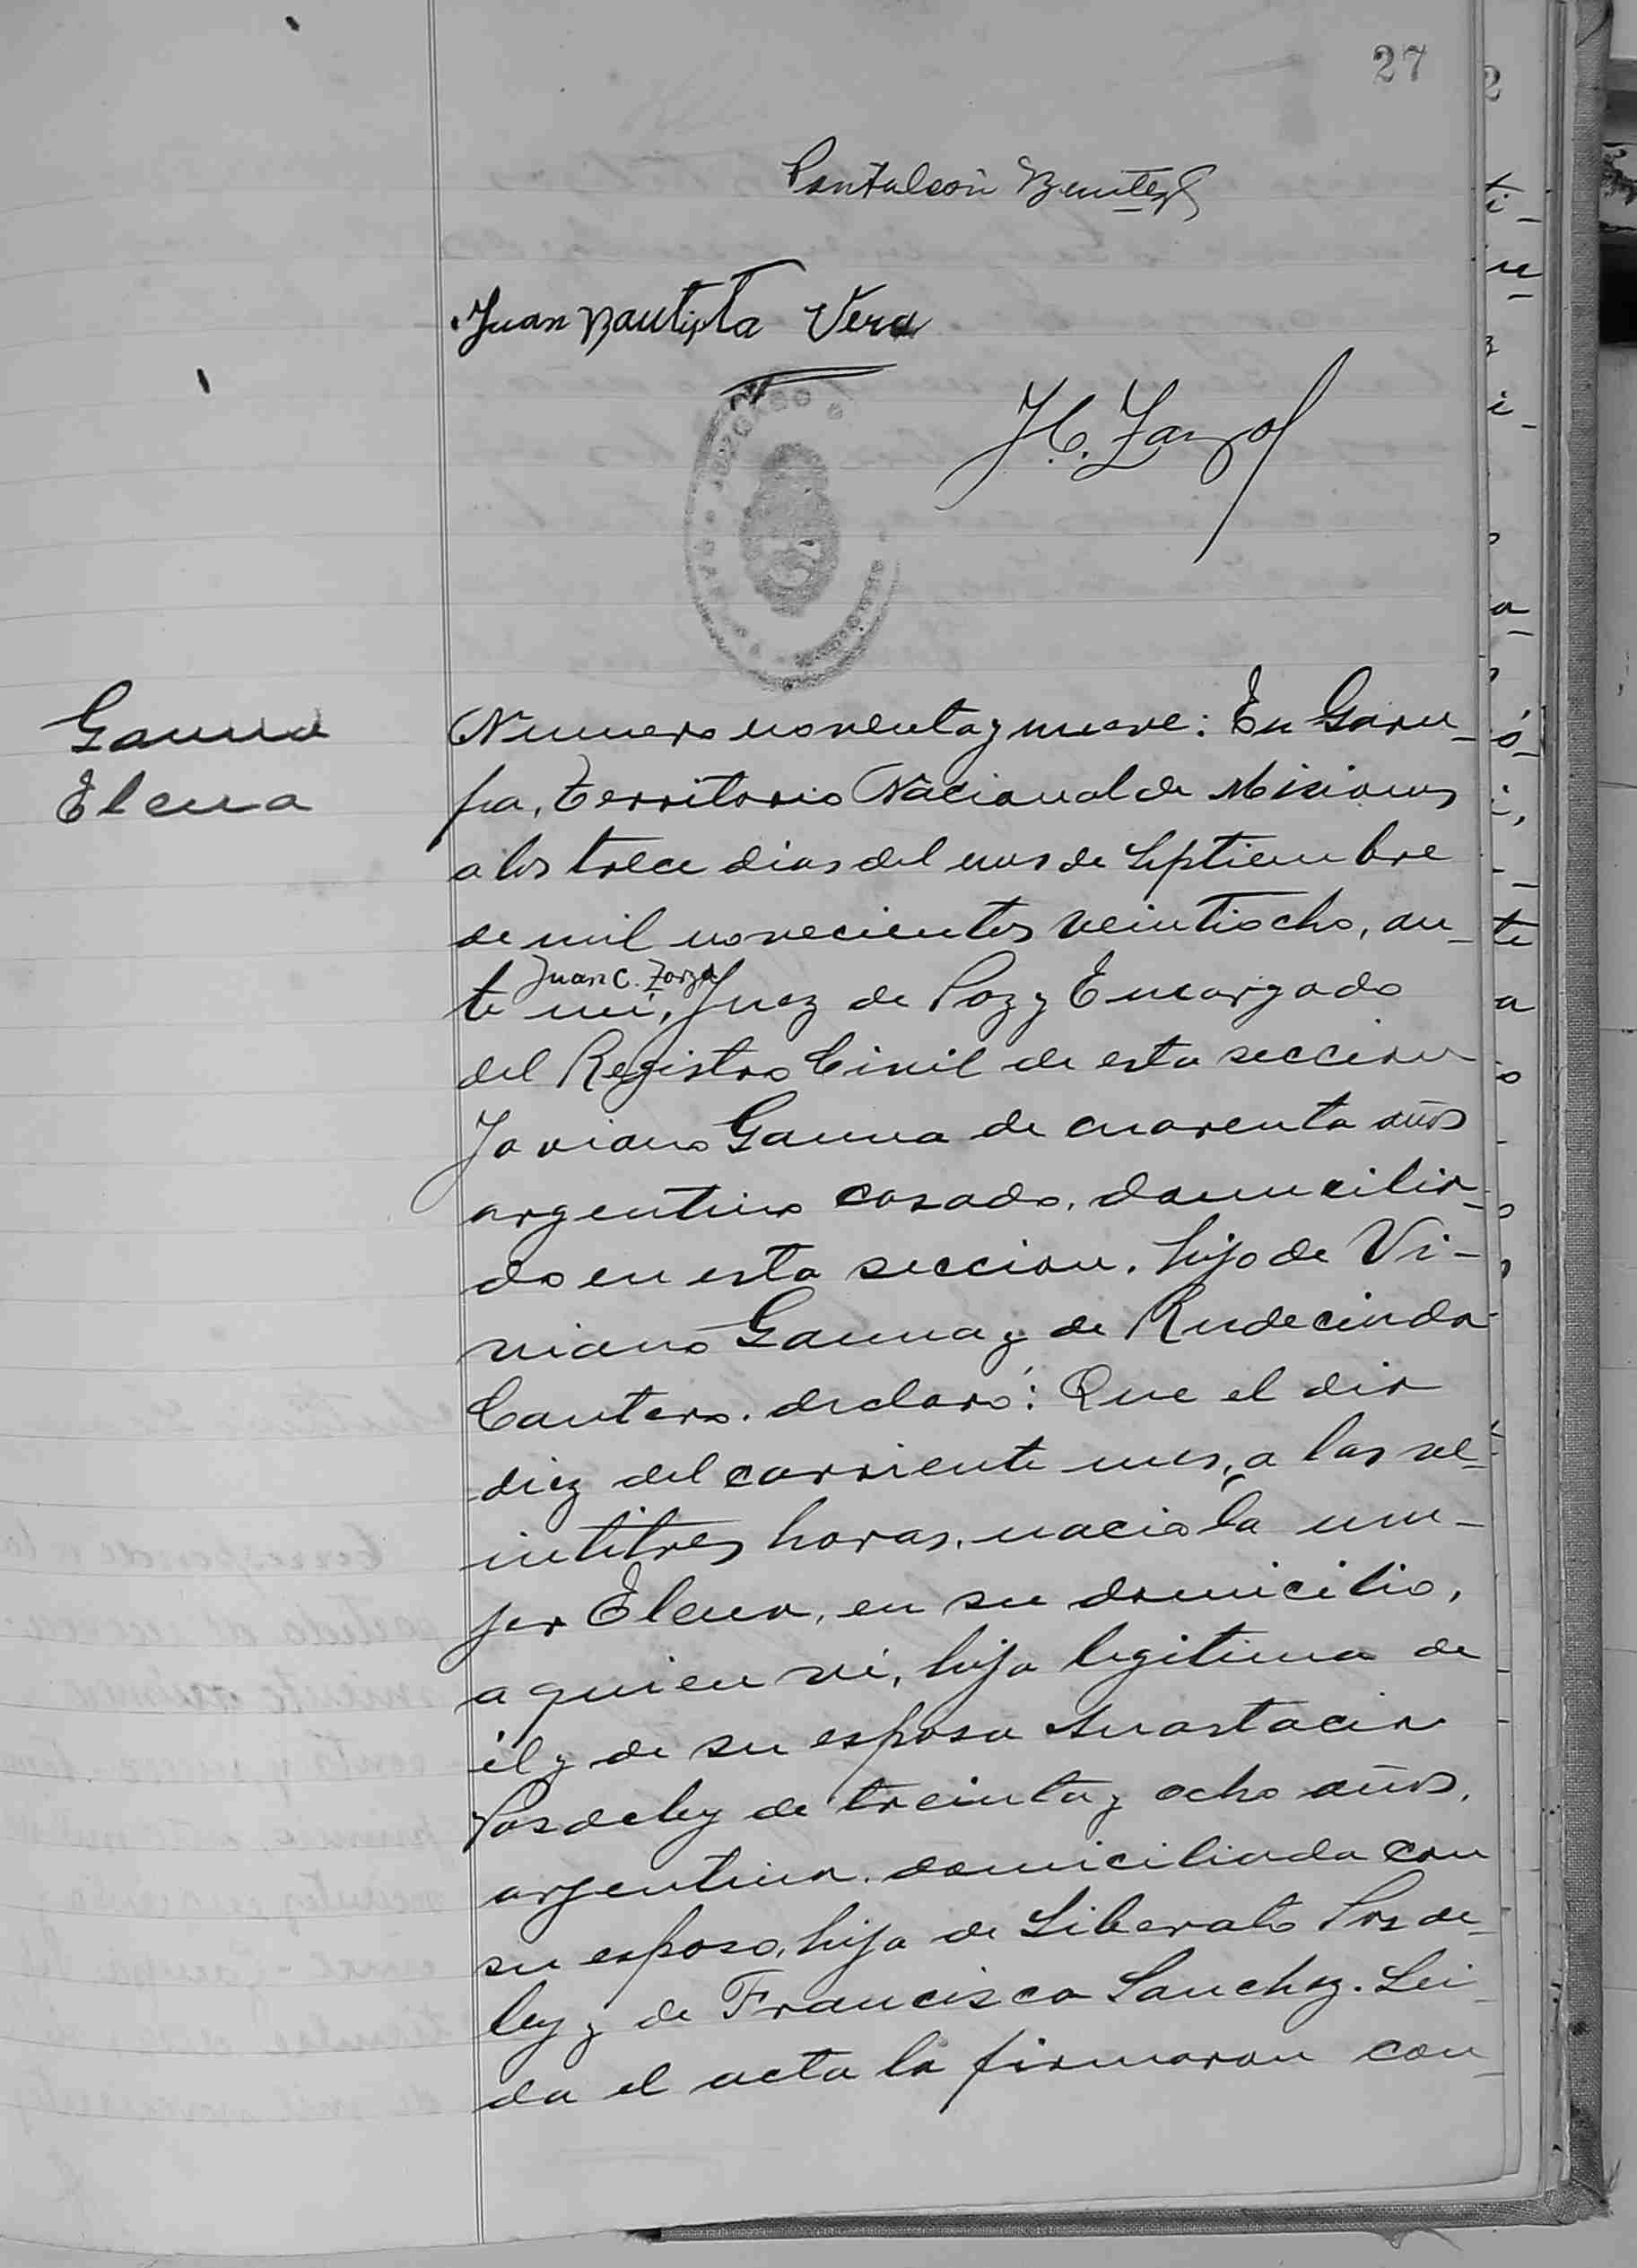 27
Pantaleón Benitez
Juan Bautista Vera
JUZGADO
J. C. Zarza
Gauna
Elena
Numero noventa y nueve: En Garu-
pa, Territorio Nacional de Misiones
a los trece dias del mes de Septiembre
de mil novecientos veintiocho, an-
Juan C. Zarza
te mi, Juez de Paz y Encargado
del Registro Civil de esta seccion
Joviano Gauna de cuarenta años
argentino casado, domicilia-
do en esta seccion, hijo de Vi-
viano Gauna y de Rudecinda
Cantero. declaró: Que el dia
diez del corriente mes, a las ve-
intitres horas, nació la mu-
jer Elena, en su domicilio,
a quien vi, hija legitima de
él y de su esposa Anastacia
Posdeley de treinta y ocho años,
argentina, domiciliada con
su esposo, hija de Liberato Posde-
ley y de Francisca Sanchez. Lei-
da el acta la firmaron con-